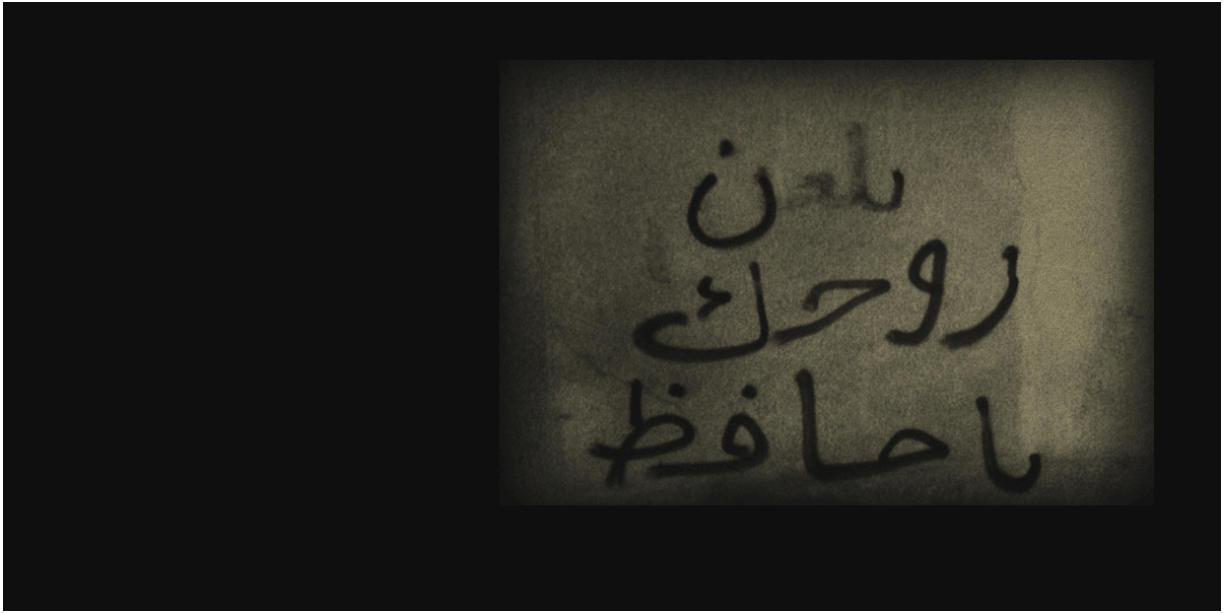 يلعن
روحك
يا حافظ